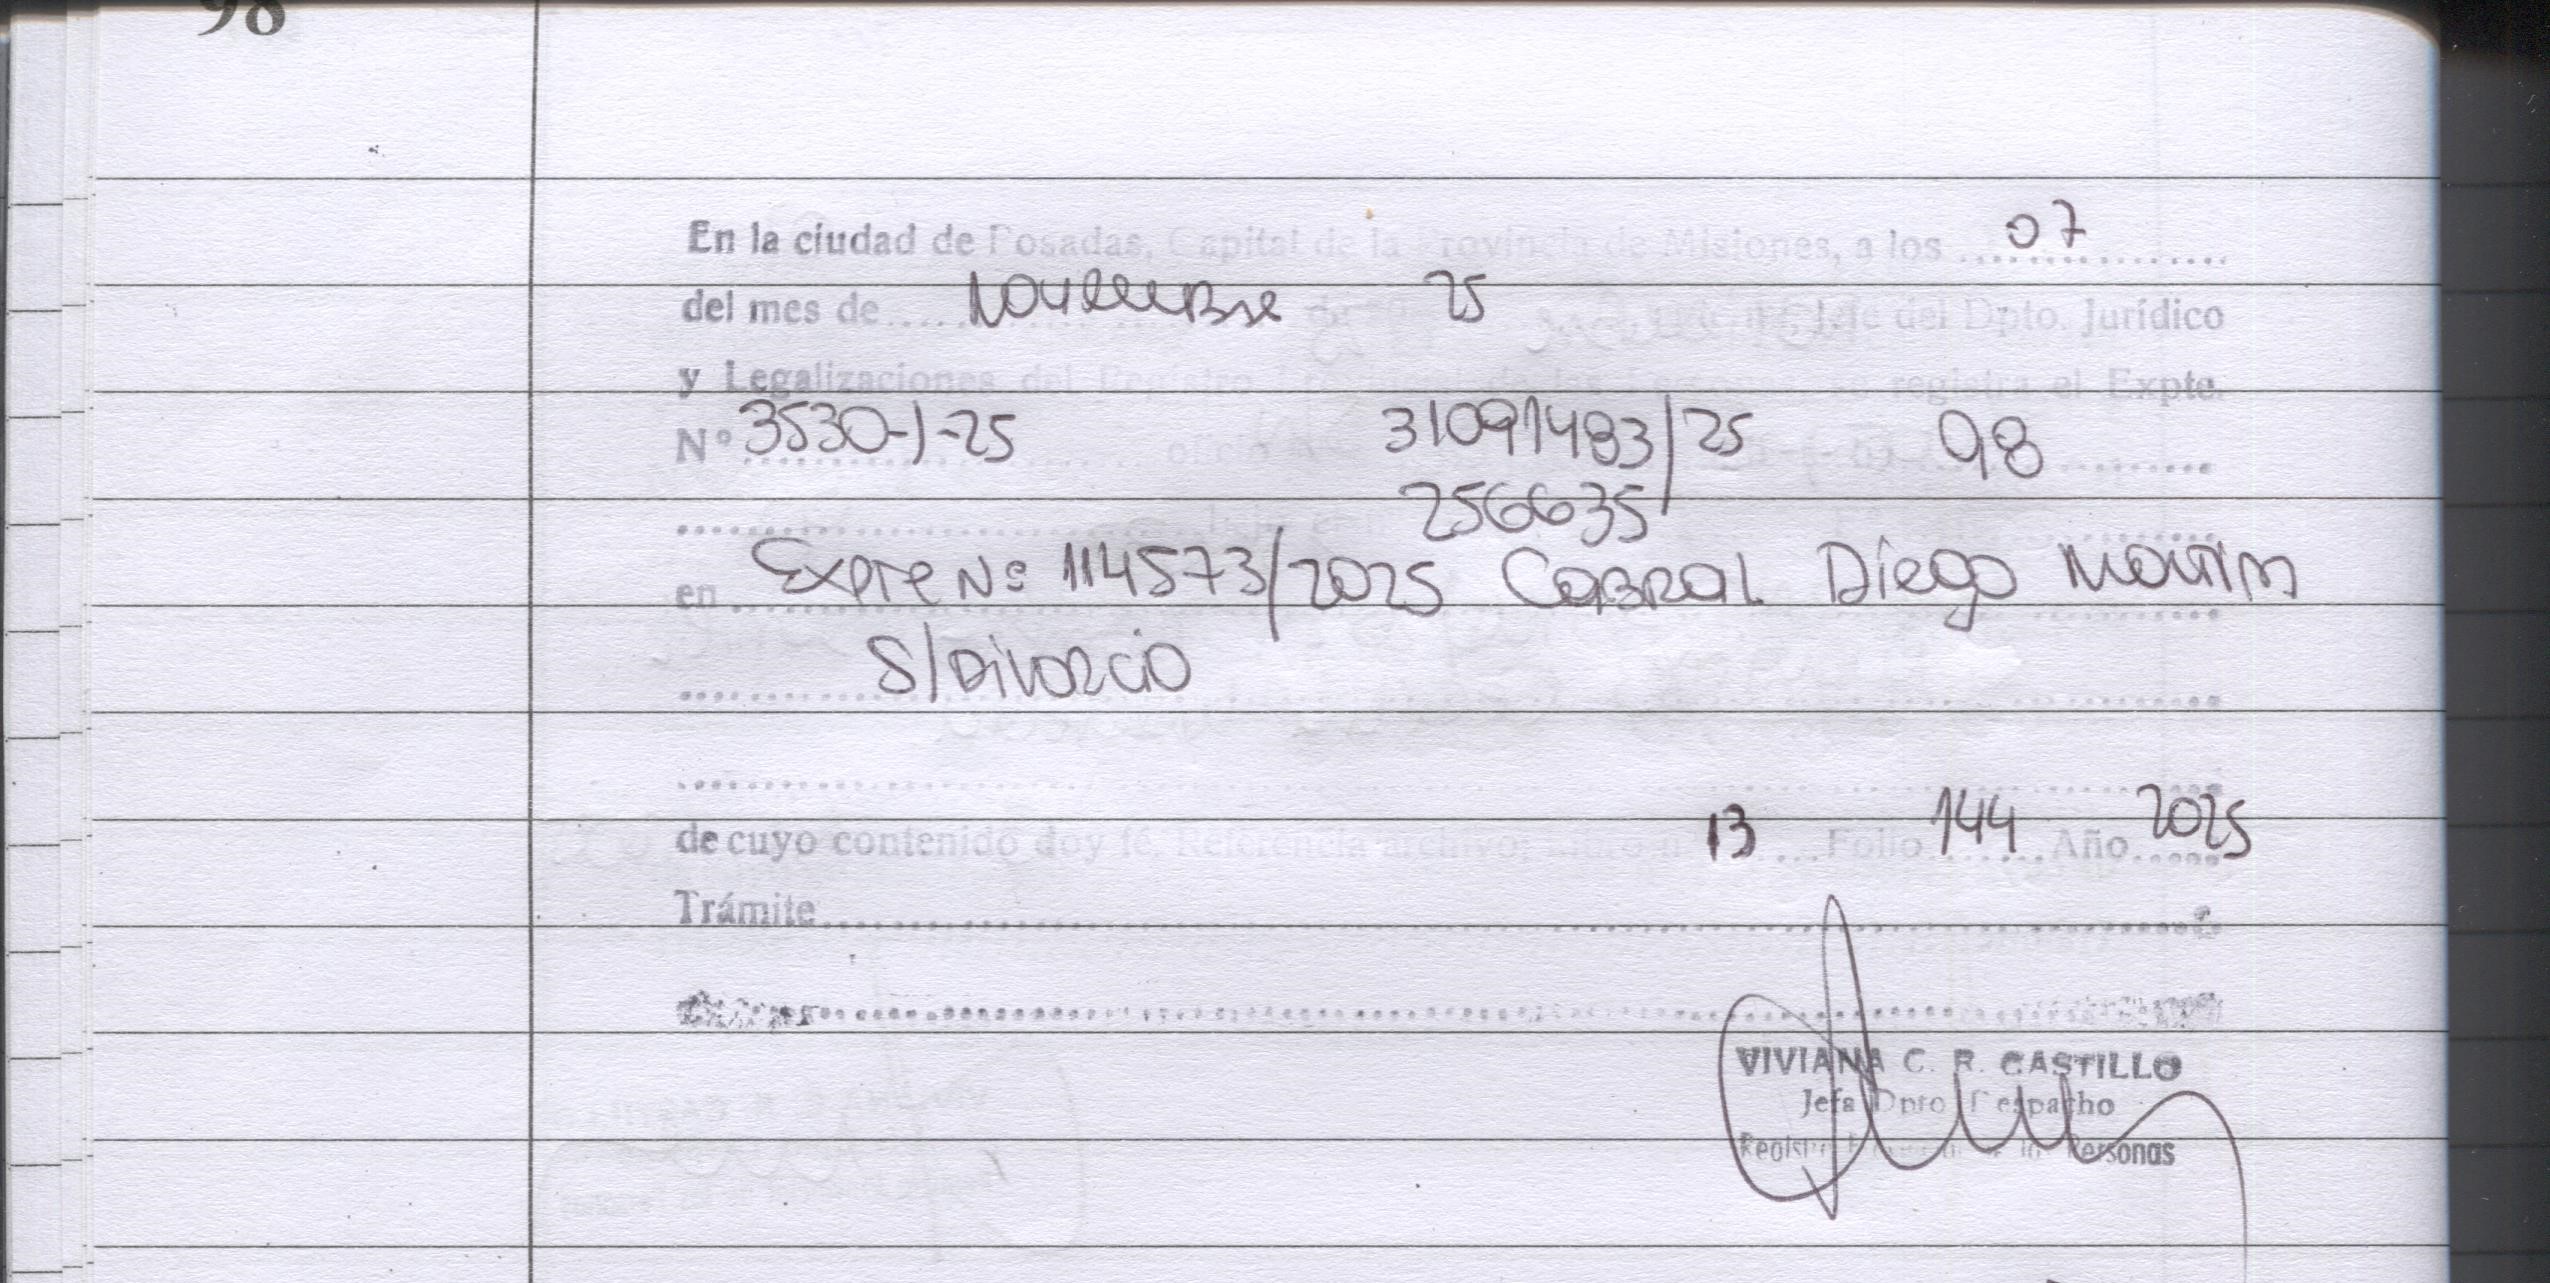 98
En la ciudad de Posadas, Capital de la Provincia de Misiones, a los 07
del mes de Noviembre de 25 Jefe del Dpto. Jurídico
y Legalizaciones del registra el Expte.
Nº 3530-J-25 oficio 31091483/25 98
256635
en Expte Nº 114573/2025 Cabral Diego Martin
S/Divorcio
de cuyo contenido doy fé. Referencia archivo: 13 Folio 144 Año 2025
Trámite
VIVIANA C. R. CASTILLO
Jefa Dpto. Despacho
Personas